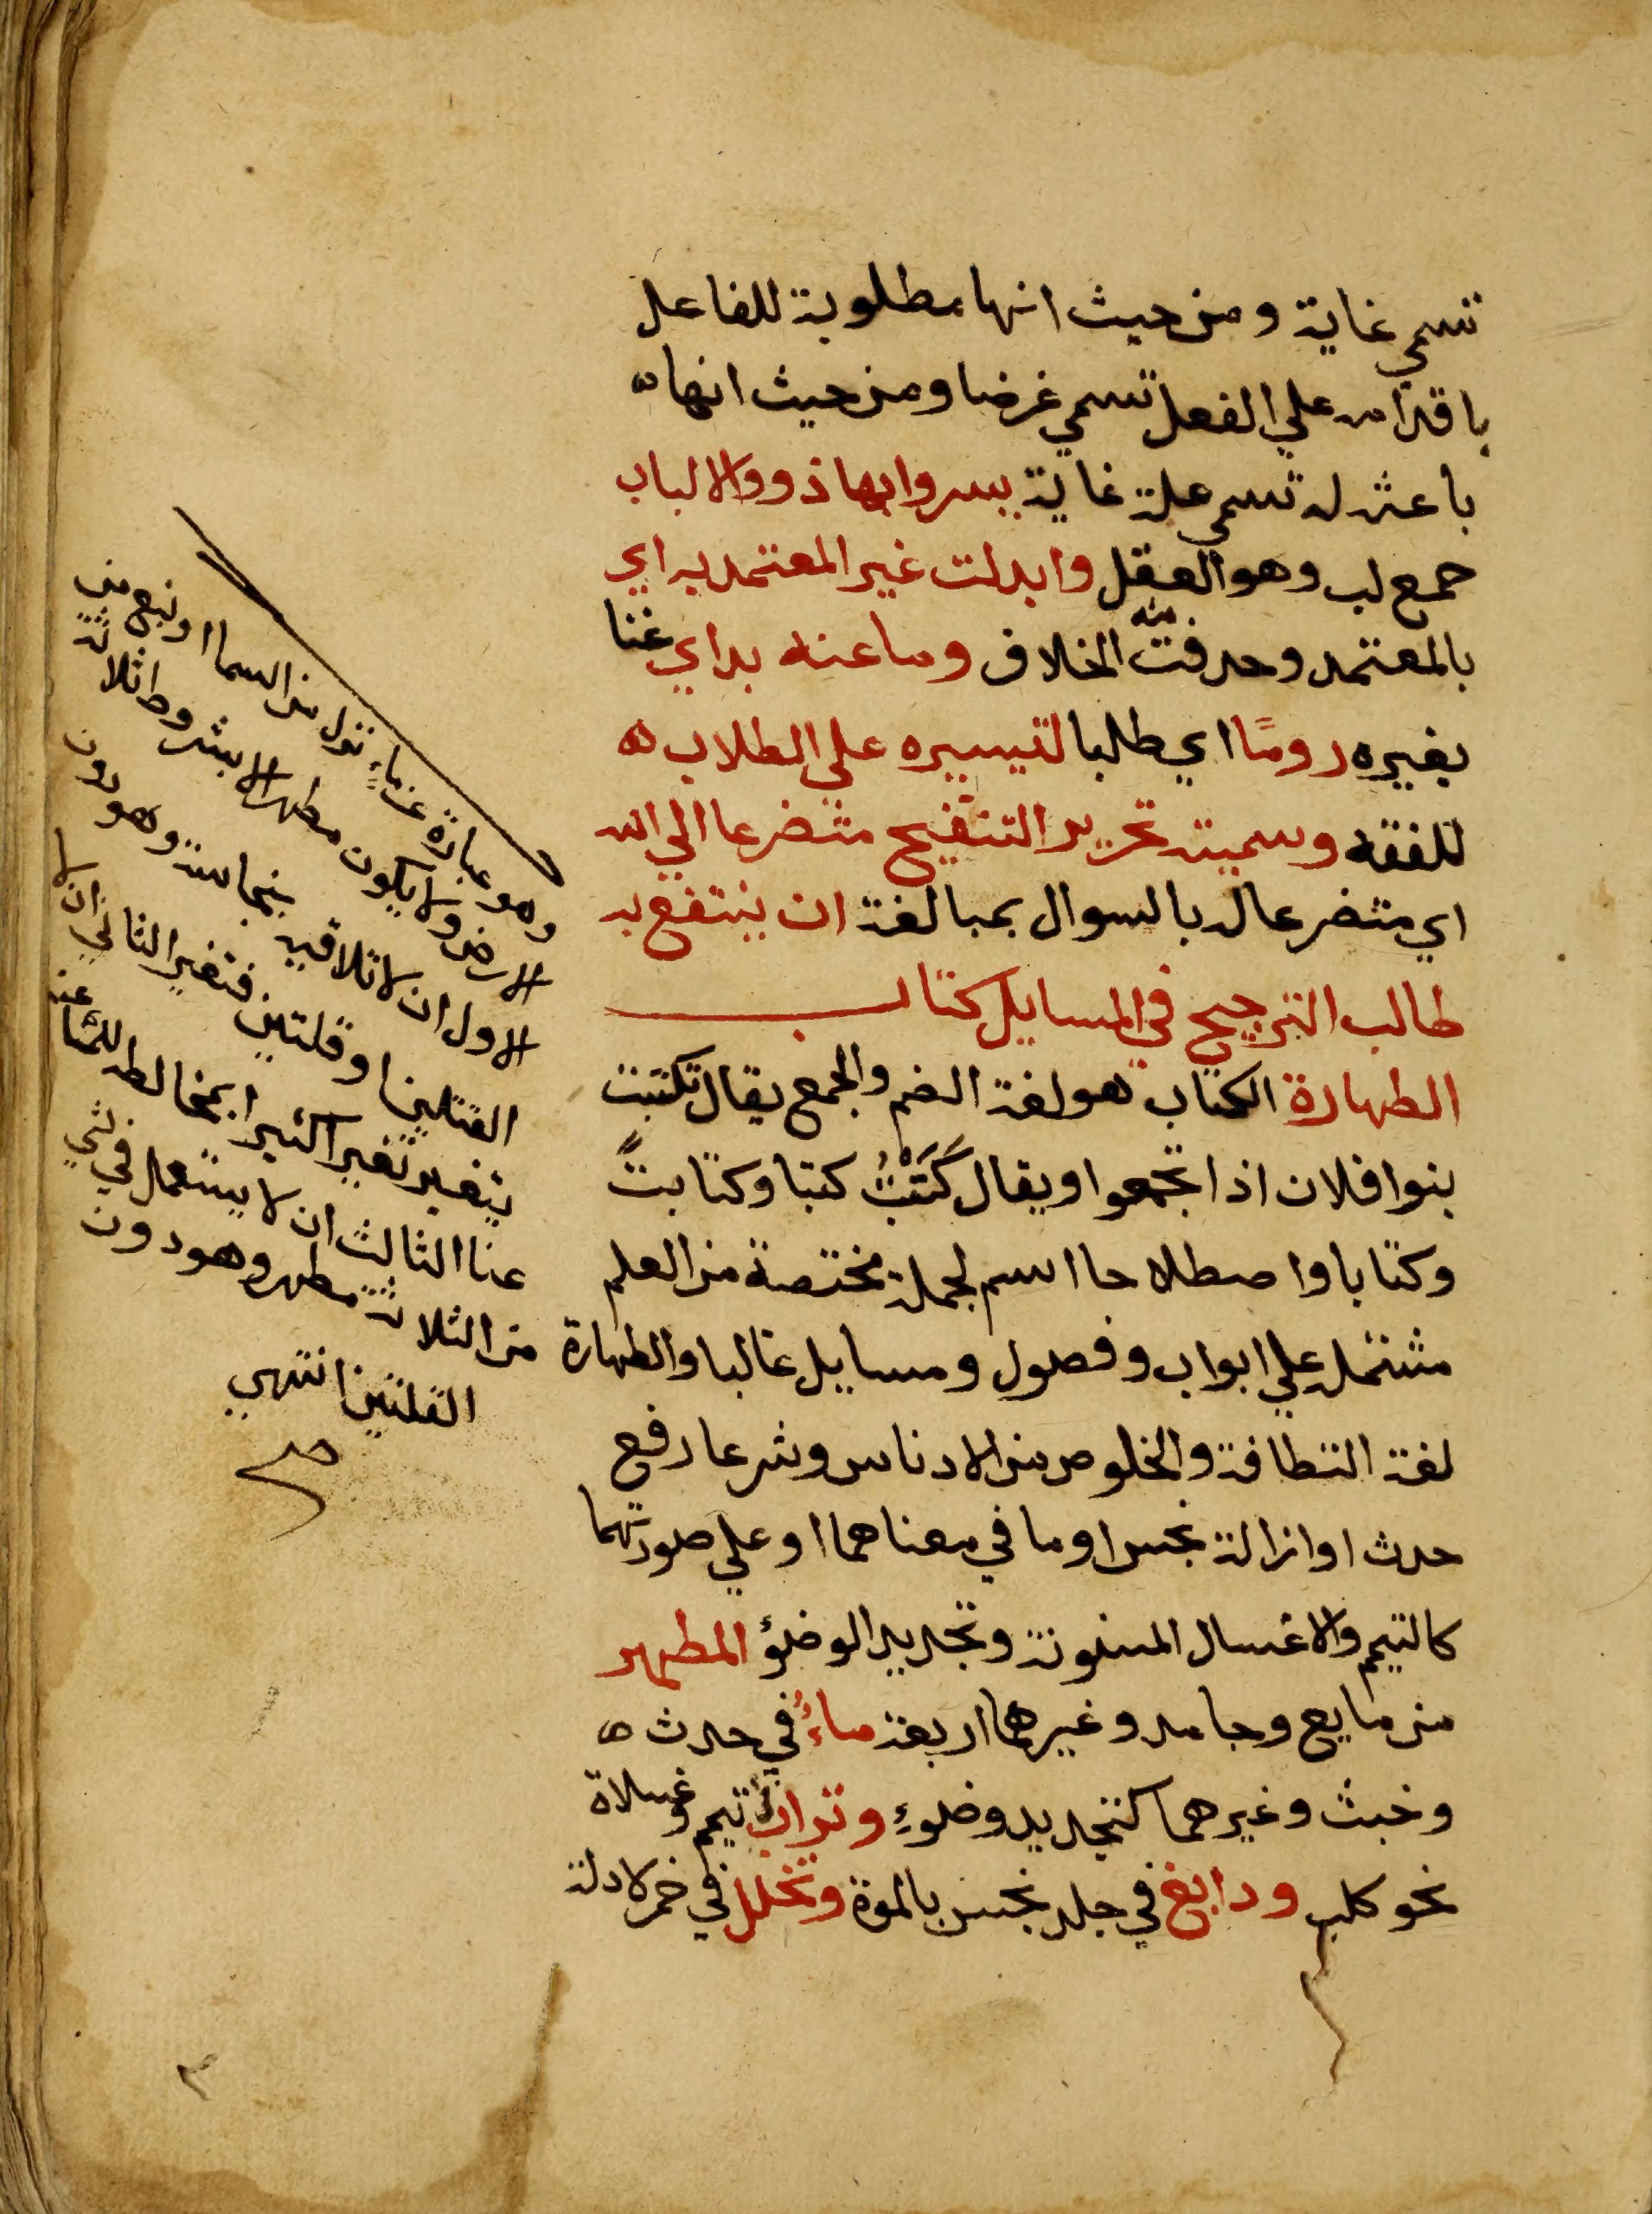 تسمي غاية ومن حيث انها مطلوبة للفاعل
باقدامه علي الفعل تسمي غرضا ومن حيث انها
باعثه له تسمي علة غاية يسر وابها ذووالالباب
جمع لب وهو العقل وابدلت غير المعتمد به اي
بالمعتمد وحدفت منه الخلاف وما عنه بد اي غنا
بغيره روما اي طلبا لتيسيره علي الطلاب
للفقه وسميته تحرير التنقيح متضرعا الي الله
اي متضرعا له بالسوال بمبالغة ان ينتفع به
طالب الترجيح في المسايل كتاب
الطهارة الكتاب هو لغة الضم والجمع يقال تكتبت
بنوا فلان اذا تجمعوا ويقال كَتَبْتُ كتبا وكتابةً
وكتابا واصطلاحا اسم لجملة مختصة من العلم
مشتملة علي ابواب وفصول ومسايل غالبا والطهارة
لغة النظافة والخلوص من الادناس وشرعا رفع
حدث او ازالة نجس او ما في معناهما او علي صورتهما
كالتيمم والاغسال المسنونة وتجديد الوضوء المطهر
من مايع وجامد وغيرهما اربعة ماءٌ في حدث
وخبث وغيرهما كتجديد وضوءٍ وتراب في تيمم وغسلاة
نحو كلب ودابغ في جلد نجس بالموة وتخلل في خمر لادلة
وهو عبارة عن ماءٍ نزل من السما او نبع من
الارض ولا يكون مطهرا الا بشروط ثلاثة
الاول ان لا تلاقيه نجاسة وهو دون
القلتين او قلتين فتغير الثاني ان لا
يتغير تغيرا كثيرا بمخالط للما عنه
عنا الثالث ان لا يستعمل في شي
من الثلاثة مطهر وهو دون
القلتين انتهي